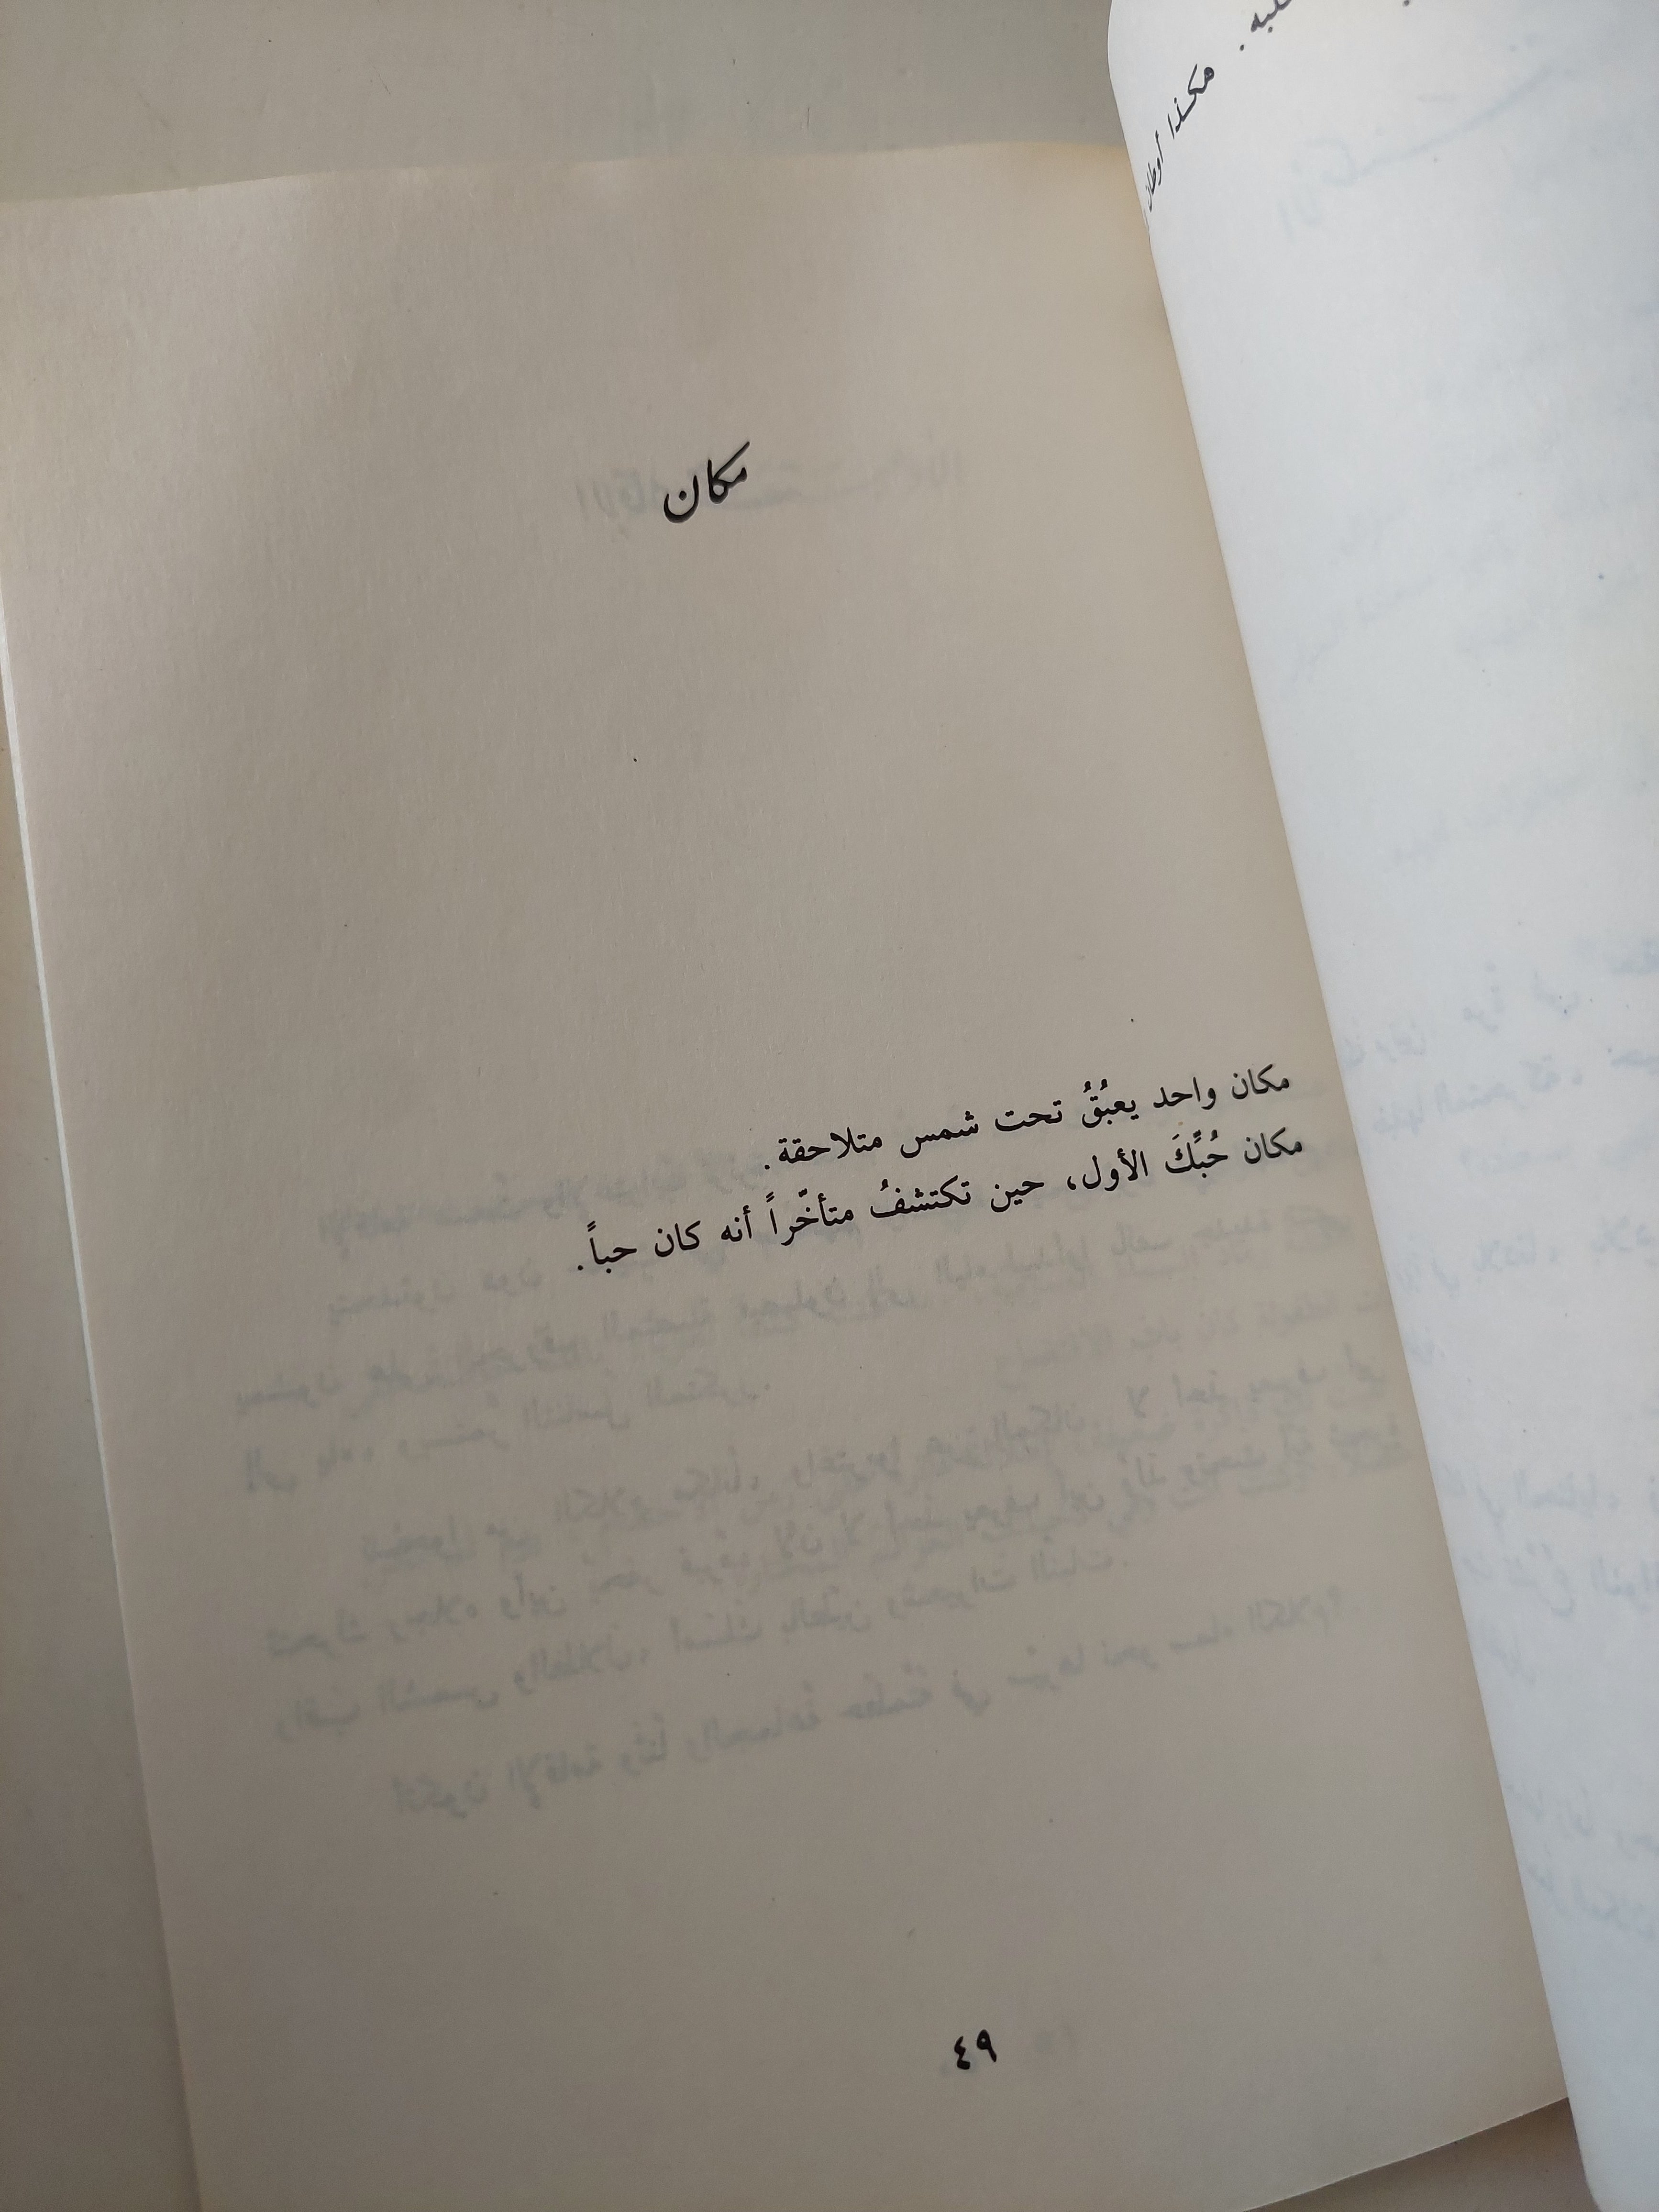 مكان
مكان واحد يعبُقُ تحت شمس متلاحقة.
مكان حُبِّكَ الأول، حين تكتشفُ متأخّراً أنه كان حباً.
٤٩
هكذا أوطان